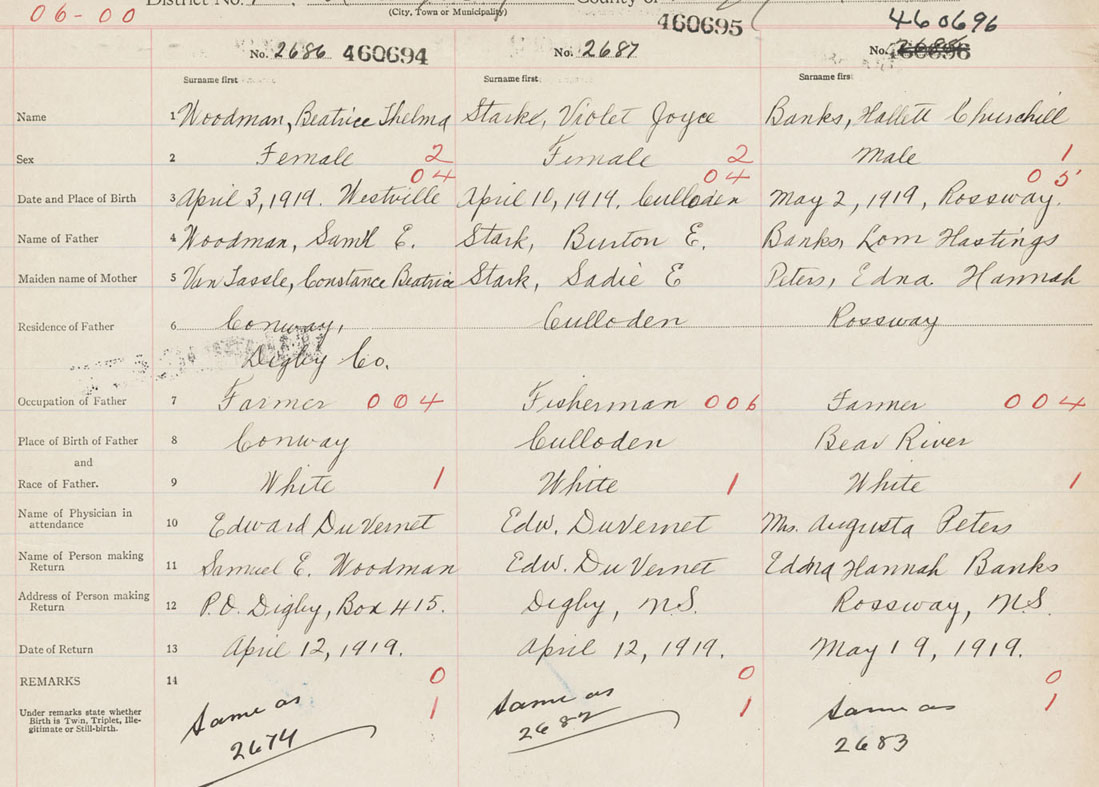 District No.
County of
06-00
(City, Town or Municipality)
460695
460696
No. 2686 460694
No. 2687
No.
Surname first
Surname first
Surname first
Name 1 Woodman, Beatrice Thelma Starke, Violet Joyce Banks, Hallett Churchill
Sex 2 Female 2 Female 2 Male 1
04 04 05
Date and Place of Birth 3 April 3, 1919. Westville April 10, 1919. Culloden May 2, 1919, Rossway.
Name of Father 4 Woodman, Saml E. Stark, Burton E. Banks, Lorn Hastings
Maiden name of Mother 5 Van Tassle, Constance Beatrice Stark, Sadie E Peters, Edna. Hannah
Residence of Father 6 Conway, Culloden Rossway
Digby Co.
Occupation of Father 7 Farmer 004 Fisherman 006 Farmer 004
Place of Birth of Father 8 Conway Culloden Bear River
and
Race of Father. 9 White 1 White 1 White 1
Name of Physician in
attendance 10 Edward DuVernet Edw. DuVernet Mrs. Augusta Peters
Name of Person making
Return 11 Samuel E. Woodman Edw. DuVernet Edna Hannah Banks
Address of Person making
Return 12 P.O. Digby, Box 415. Digby, N.S. Rossway, N.S.
Date of Return 13 April 12, 1919. April 12, 1919. May 19, 1919.
REMARKS 14 0 0 0
Under remarks state whether
Birth is Twin, Triplet, Ille-
gitimate or Still-birth.
Same as 1 Same as 1 Same as 1
2674 2682 2683